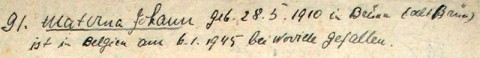 91. Materna Johann geb. 28.5.1910 in Brünn (Alt Brünn)
ist in Belgien am 6.1.1945 bei Noville gefallen.